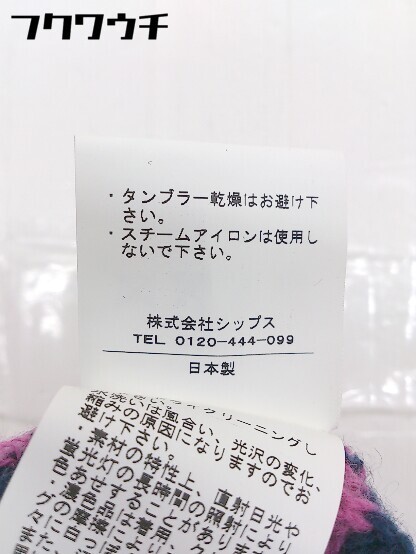 フクワウチ
・タンブラー乾燥はお避け下
さい。
・スチームアイロンは使用し
ないで下さい。
株式会社シップス
TEL 0120-444-099
日本製
水洗いは風合い、光沢の変化、
縮みの原因になりますのでお
避け下さい。
・素材の特性上、直射日光や
蛍光灯の長時間の照射により
色あせすることがあります
・濃色品は着用